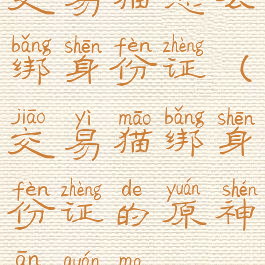 bǎng shēn fèn zhèng
绑身份证（
jiāo yì māo bǎng shēn
交易猫绑身
fèn zhèng de yuán shén
份证的原神
ān quán ma